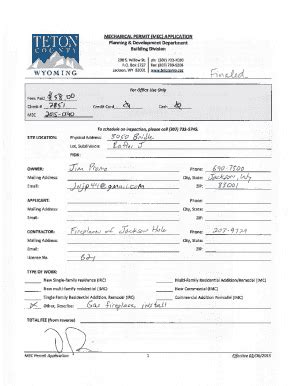 TETON COUNTY WYOMING
MECHANICAL PERMIT (MEC) APPLICATION
Planning & Development Department
Building Division
200 S. Willow St. ph: (307) 733-7030
P.O. Box 1727 fax: (307) 739-9208
Jackson, WY 83001 www.tetonwyo.org
Finaled
For Office Use Only
Fees Paid $58.00
Check # 7851 Credit Card Cash
MEC
To schedule an inspection, please call (307) 732-5745.
SITE LOCATION: Physical Address:
Lot, Subdivision:
PIDN:
OWNER: Jim Phone: 690-7500
Mailing Address: City, State: Jackson Wy
Email: ZIP: 83001
APPLICANT: Phone:
Mailing Address: City, State:
Email: ZIP:
CONTRACTOR: Fireplace of Jackson Hole Phone:
Mailing Address: City, State:
Email: ZIP:
License No. 621
TYPE OF WORK:
New Single-family residence (IRC) Multi-Family Residential Addition/Remodel (IMC)
New multi-family residential (IMC) New Commercial (IMC)
Single-Family Residential Addition, Remodel (IRC) Commercial Addition Remodel (IMC)
Other, Describe: Gas fireplace install
TOTAL FEE (from inverse)
MEC Permit Application 1 Effective